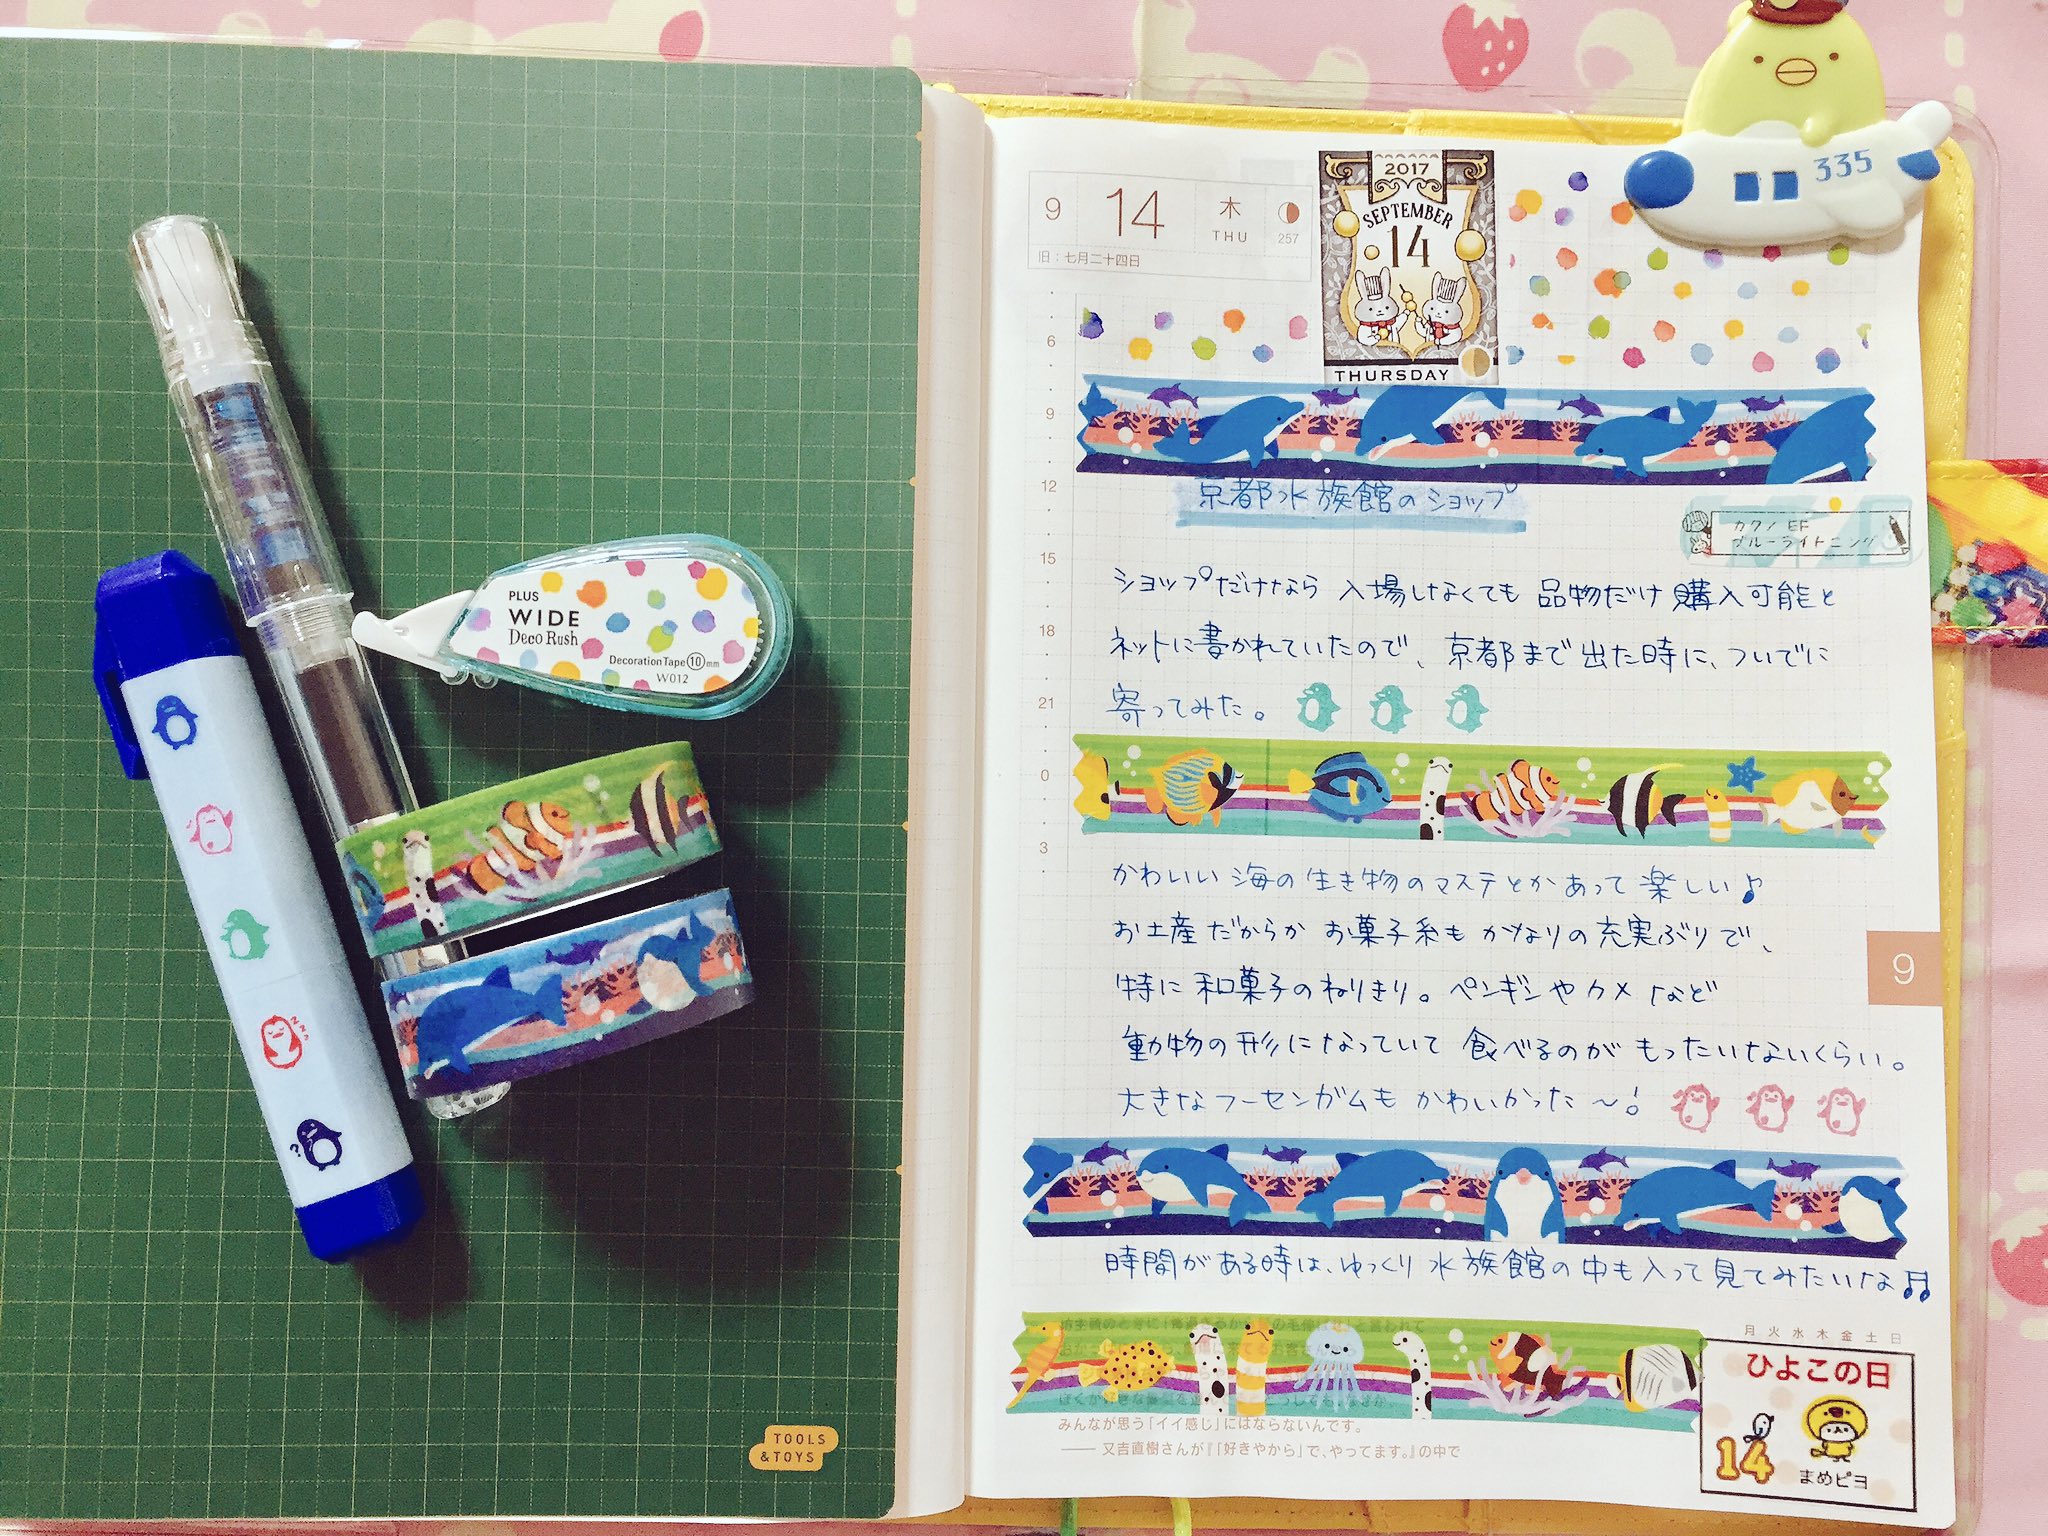 335
9
14
木
THU
257
旧:七月二十四日
2017
SEPTEMBER
14
THURSDAY
6
9
12
15
18
21
0
3
京都水族館のショップ
カクノ EF
ブルーライトニング
ショップだけなら 入場しなくても 品物だけ購入可能と
ネットに書かれていたので、京都まで出た時に、ついでに
寄ってみた。
かわいい海の生き物のマステとかあって楽しい♪
お土産だからか お菓子系も かなりの充実ぶりで、
特に和菓子のねりきり。ペンギンやカメなど
動物の形になっていて 食べるのが もったいないくらい。
大きなフーセンガムも かわいかった〜!
9
時間がある時は、ゆっくり水族館の中も入って見てみたいな♫
みんなが思う「イイ感じ」にはならないんです。
—— 又吉直樹さんが『「好きやから」で、やってます。』の中で
月火水木金土日
ひよこの日
14
まめピヨ
PLUS
WIDE
Deco Rush
Decoration Tape 10mm
W012
TOOLS
&TOYS